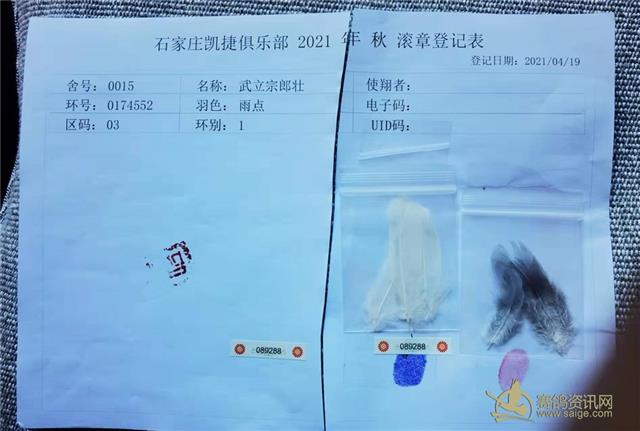 石家庄凯捷俱乐部 2021 年 秋 滚章登记表
登记日期：2021/04/19
舍号：0015 名称：武立宗郎壮 使翔者：
环号：0174552 羽色：雨点 电子码：
区码：03 环别：1 UID码：
089288
089288
赛鸽资讯网
www.saige.com